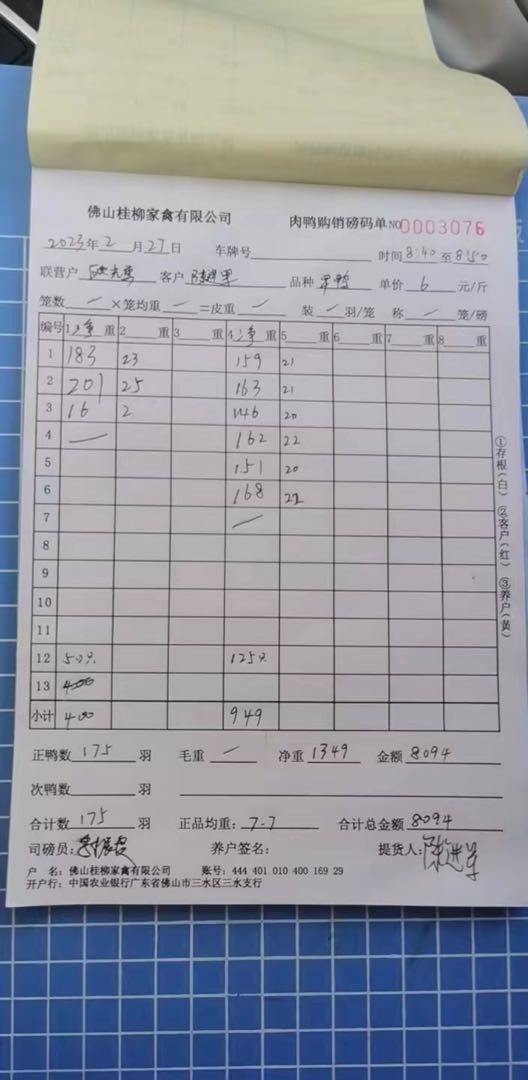 佛山桂柳家禽有限公司 肉鸭购销磅码单 NO0003076
2023年2月27日 车牌号 时间8:40至8:50
联营户 客户 品种 单价 6 元/斤
笼数 — ×笼均重 — =皮重 — 装 — 羽/笼 称 — 笼/磅
编号 1净重 2 重 3 重 4净重 5 重 6 重 7 重 8 重
1 183 23 159 21
2 201 25 163 21
3 16 2 146 20
4 — 162 22
5 151 20
6 168 21
7 —
8
9
10
11
12 50只 125只
13 400
小计 400 949
正鸭数 175 羽 毛重 — 净重 1349 金额 8094
次鸭数 羽
合计数 175 羽 正品均重: 7.7 合计总金额 8094
司磅员: 养户签名: 提货人:
户 名: 佛山桂柳家禽有限公司 账号: 444 401 010 400 169 29
开户行: 中国农业银行广东省佛山市三水区三水支行
①存根(白) ②客户(红) ③养户(黄)